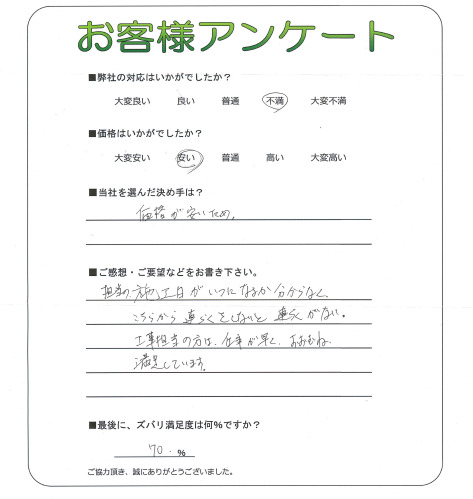 お客様アンケート
■弊社の対応はいかがでしたか？
大変良い 良い 普通 不満 大変不満
■価格はいかがでしたか？
大変安い 安い 普通 高い 大変高い
■当社を選んだ決め手は？
価格が安いため。
■ご感想・ご要望などをお書き下さい。
担当の施工日がいつになるか分からなく、
こちらから連らくをしないと連らくがない。
工事担当の方は、仕事が早く、おおむね
満足しています。
■最後に、ズバリ満足度は何%ですか？
70.%
ご協力頂き、誠にありがとうございました。